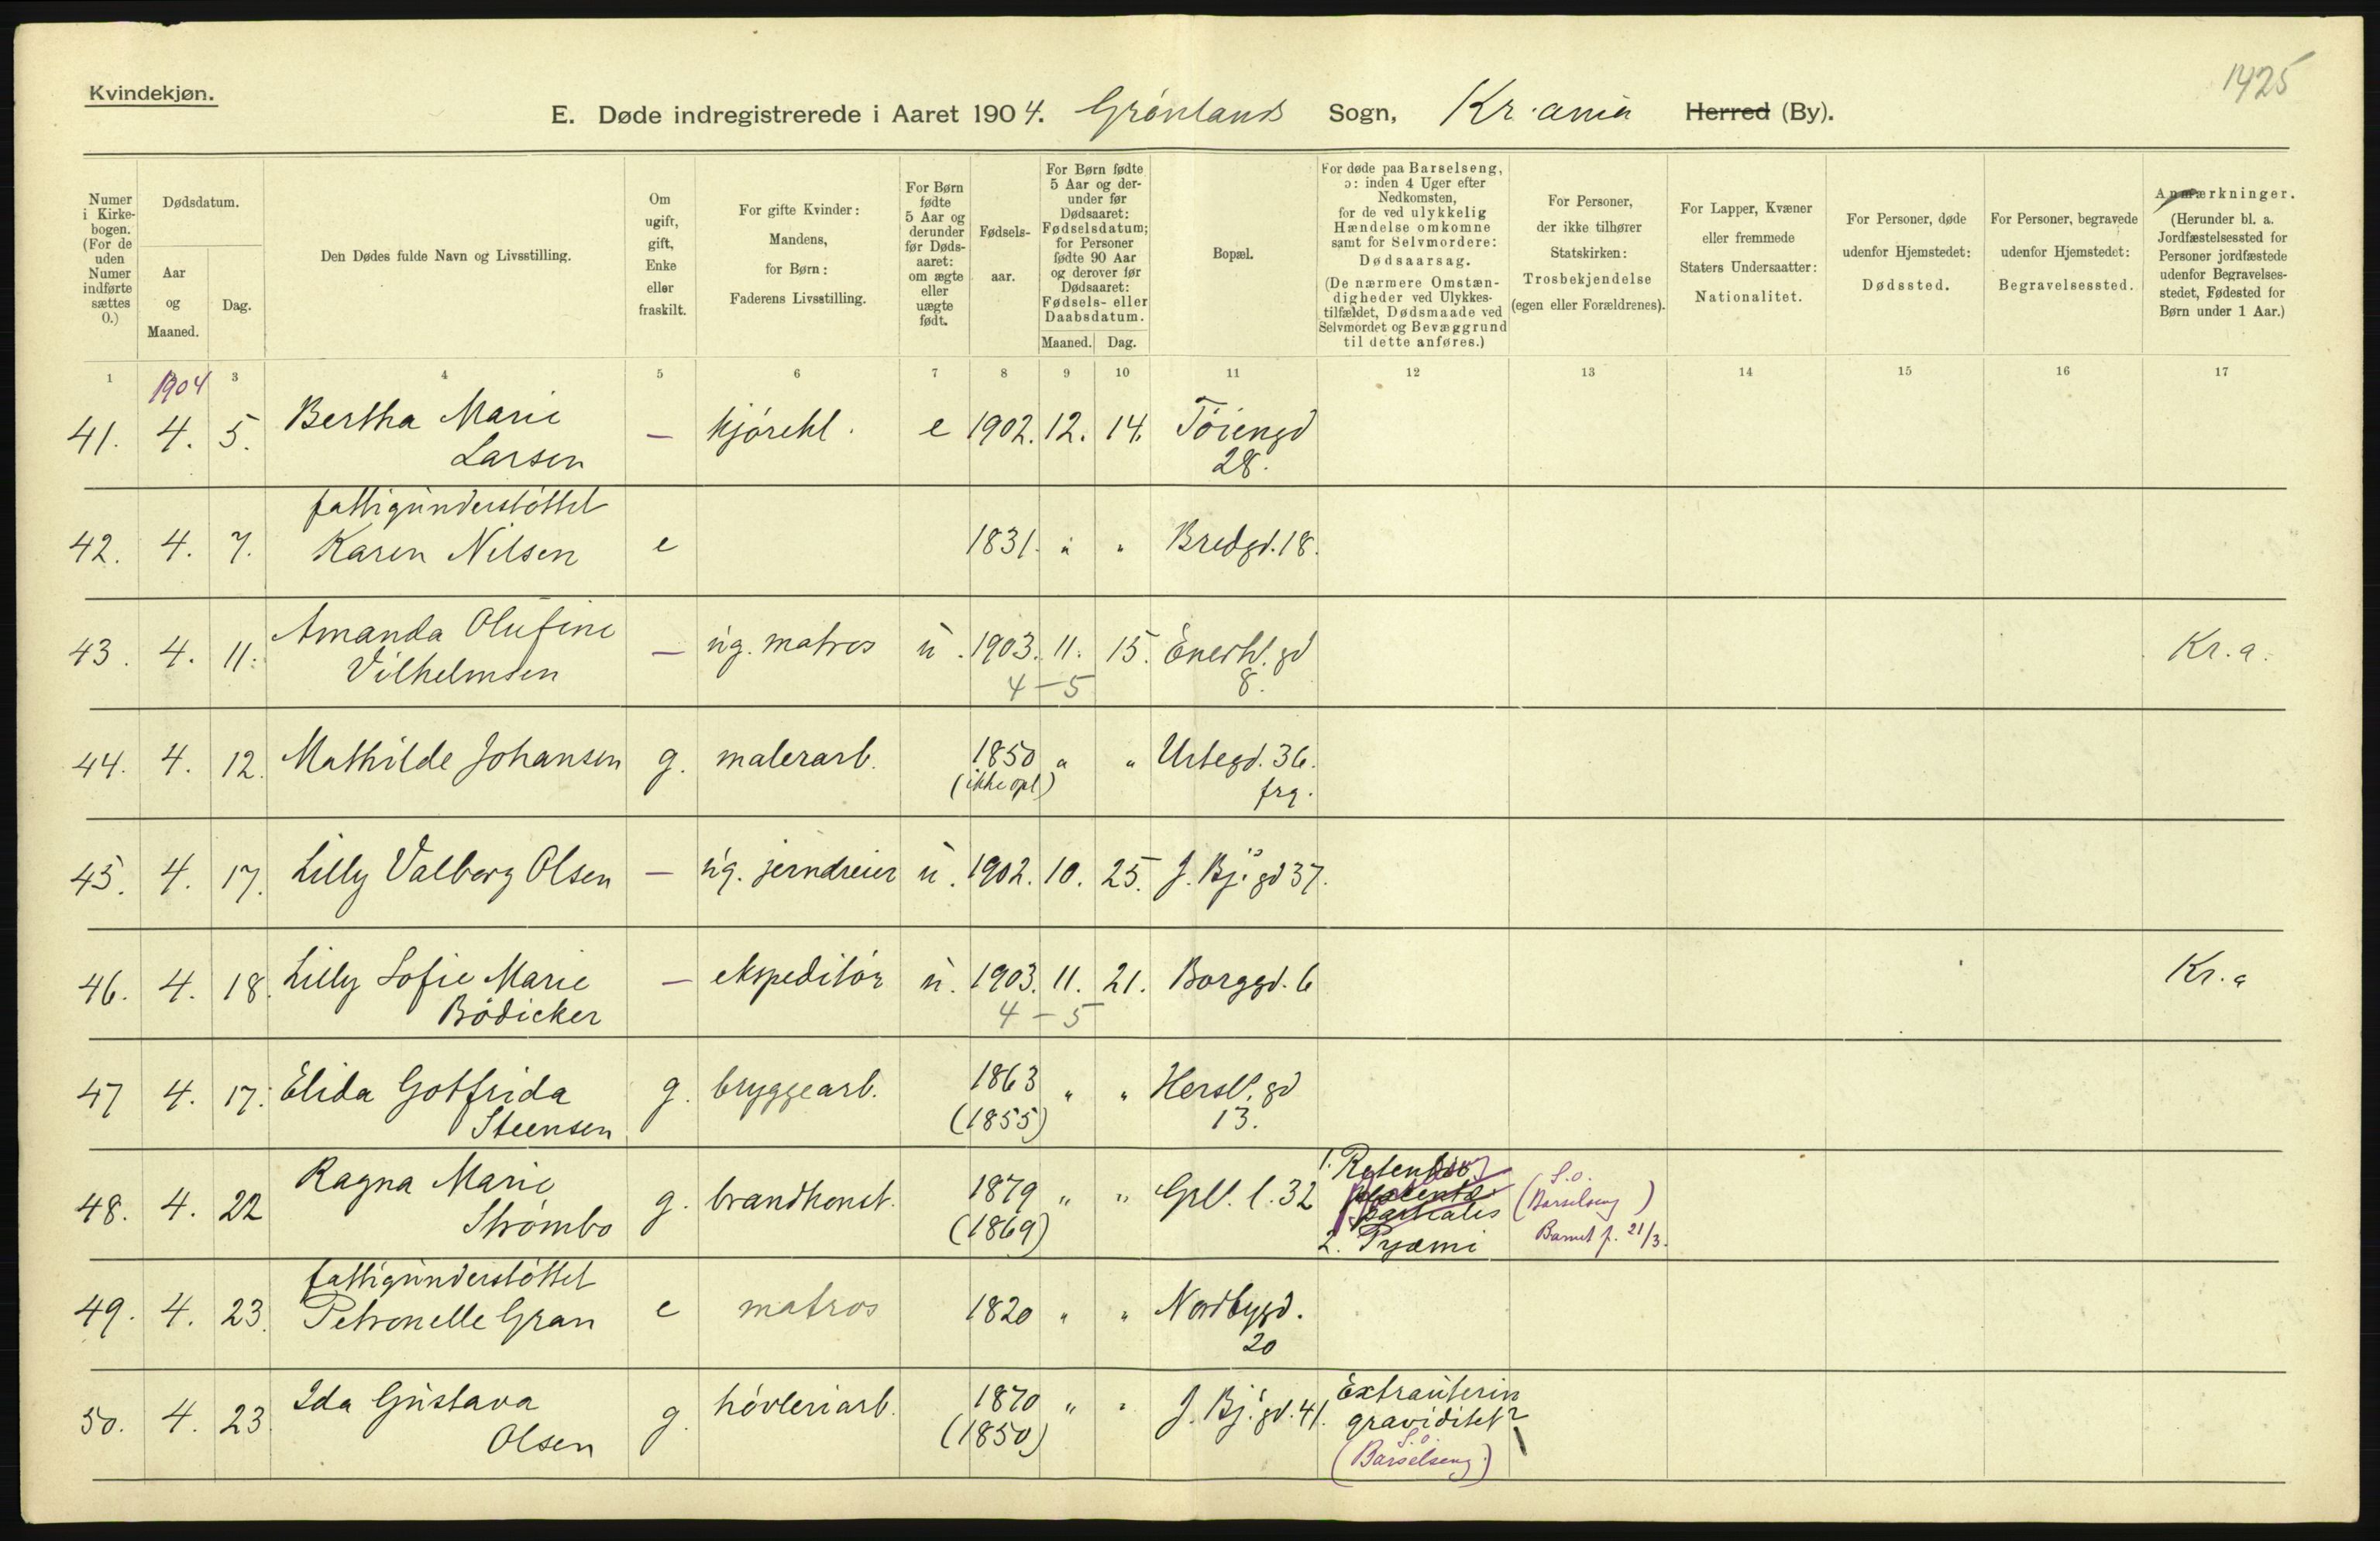 1425
Kvindekjøn.
E. Døde indregistrerede i Aaret 1904. Grønlands Sogn, Kr.ania Herred (By).
Numer i Kirkebogen. (For de uden Numer indførte sættes 0.)
Dødsdatum.
Aar og Maaned.
Dag.
Den Dødes fulde Navn og Livsstilling.
Om ugift, gift, Enke eller fraskilt.
For gifte Kvinder: Mandens, for Børn: Faderens Livsstilling.
For Børn fødte 5 Aar og derunder før Dødsaaret: om ægte eller uægte født.
Fødselsaar.
For Børn fødte 5 Aar og derunder før Dødsaaret: Fødselsdatum; for Personer fødte 90 Aar og derover før Dødsaaret: Fødsels- eller Daabsdatum.
Maaned. Dag.
Bopæl.
For døde paa Barselseng, ɔ: inden 4 Uger efter Nedkomsten, for de ved ulykkelig Hændelse omkomne samt for Selvmordere: Dødsaarsag. (De nærmere Omstændigheder ved Ulykkestilfældet, Dødsmaade ved Selvmordet og Bevæggrund til dette anføres.)
For Personer, der ikke tilhører Statskirken: Trosbekjendelse (egen eller Forældrenes).
For Lapper, Kvæner eller fremmede Staters Undersaatter: Nationalitet.
For Personer, døde udenfor Hjemstedet: Dødssted.
For Personer, begravede udenfor Hjemstedet: Begravelsessted.
Anmærkninger. (Herunder bl. a. Jordfæstelsessted for Personer jordfæstede udenfor Begravelsesstedet, Fødested for Børn under 1 Aar.)
1 1904 3 4 5 6 7 8 9 10 11 12 13 14 15 16 17
41. 4. 5. Bertha Marie Larsen — kjørekl. e 1902. 12. 14. Töiengd 28.
42. 4. 7. fattigunderstøttet Karen Nilsen e 1831. " " Bredgd. 18.
43. 4. 11. Amanda Olufine Vilhelmsen — ug. matros u. 1903. 11. 15. Enerhl. gd 8. Kr.a.
4 – 5
44. 4. 12. Mathilde Johansen g. malerarb. 1850 (ikke opl) " " Urtegd. 36. frg.
45. 4. 17. Lilly Valborg Olsen — ug. jerndreier u. 1902. 10. 25. J. Bj. gd 37.
46. 4. 18. Lilly Sofie Marie Bödicker — ekspeditør u. 1903. 11. 21. Borggd. 6 Kr.a
4 – 5
47 4. 17. Elida Gotfrida Steensen g. bryggearb. 1863 (1855) " " Hersl. gd 13.
48. 4. 22 Ragna Marie Strømbo g. brandkonst. 1879 (1869) " " Grl. l. 32 1. placenta partialis 2. Pyæmi (S.o. Barselseng) Barnet f. 21/3.
49. 4. 23. fattigunderstøttet Petronelle Gran e matros 1820 " " Nordbygd. 20
50. 4. 23. Ida Gustava Olsen g. høvleriarb. 1870 (1850) " " J. Bj. gd. 41. Extrauterin graviditet? S.o. (Barselseng)